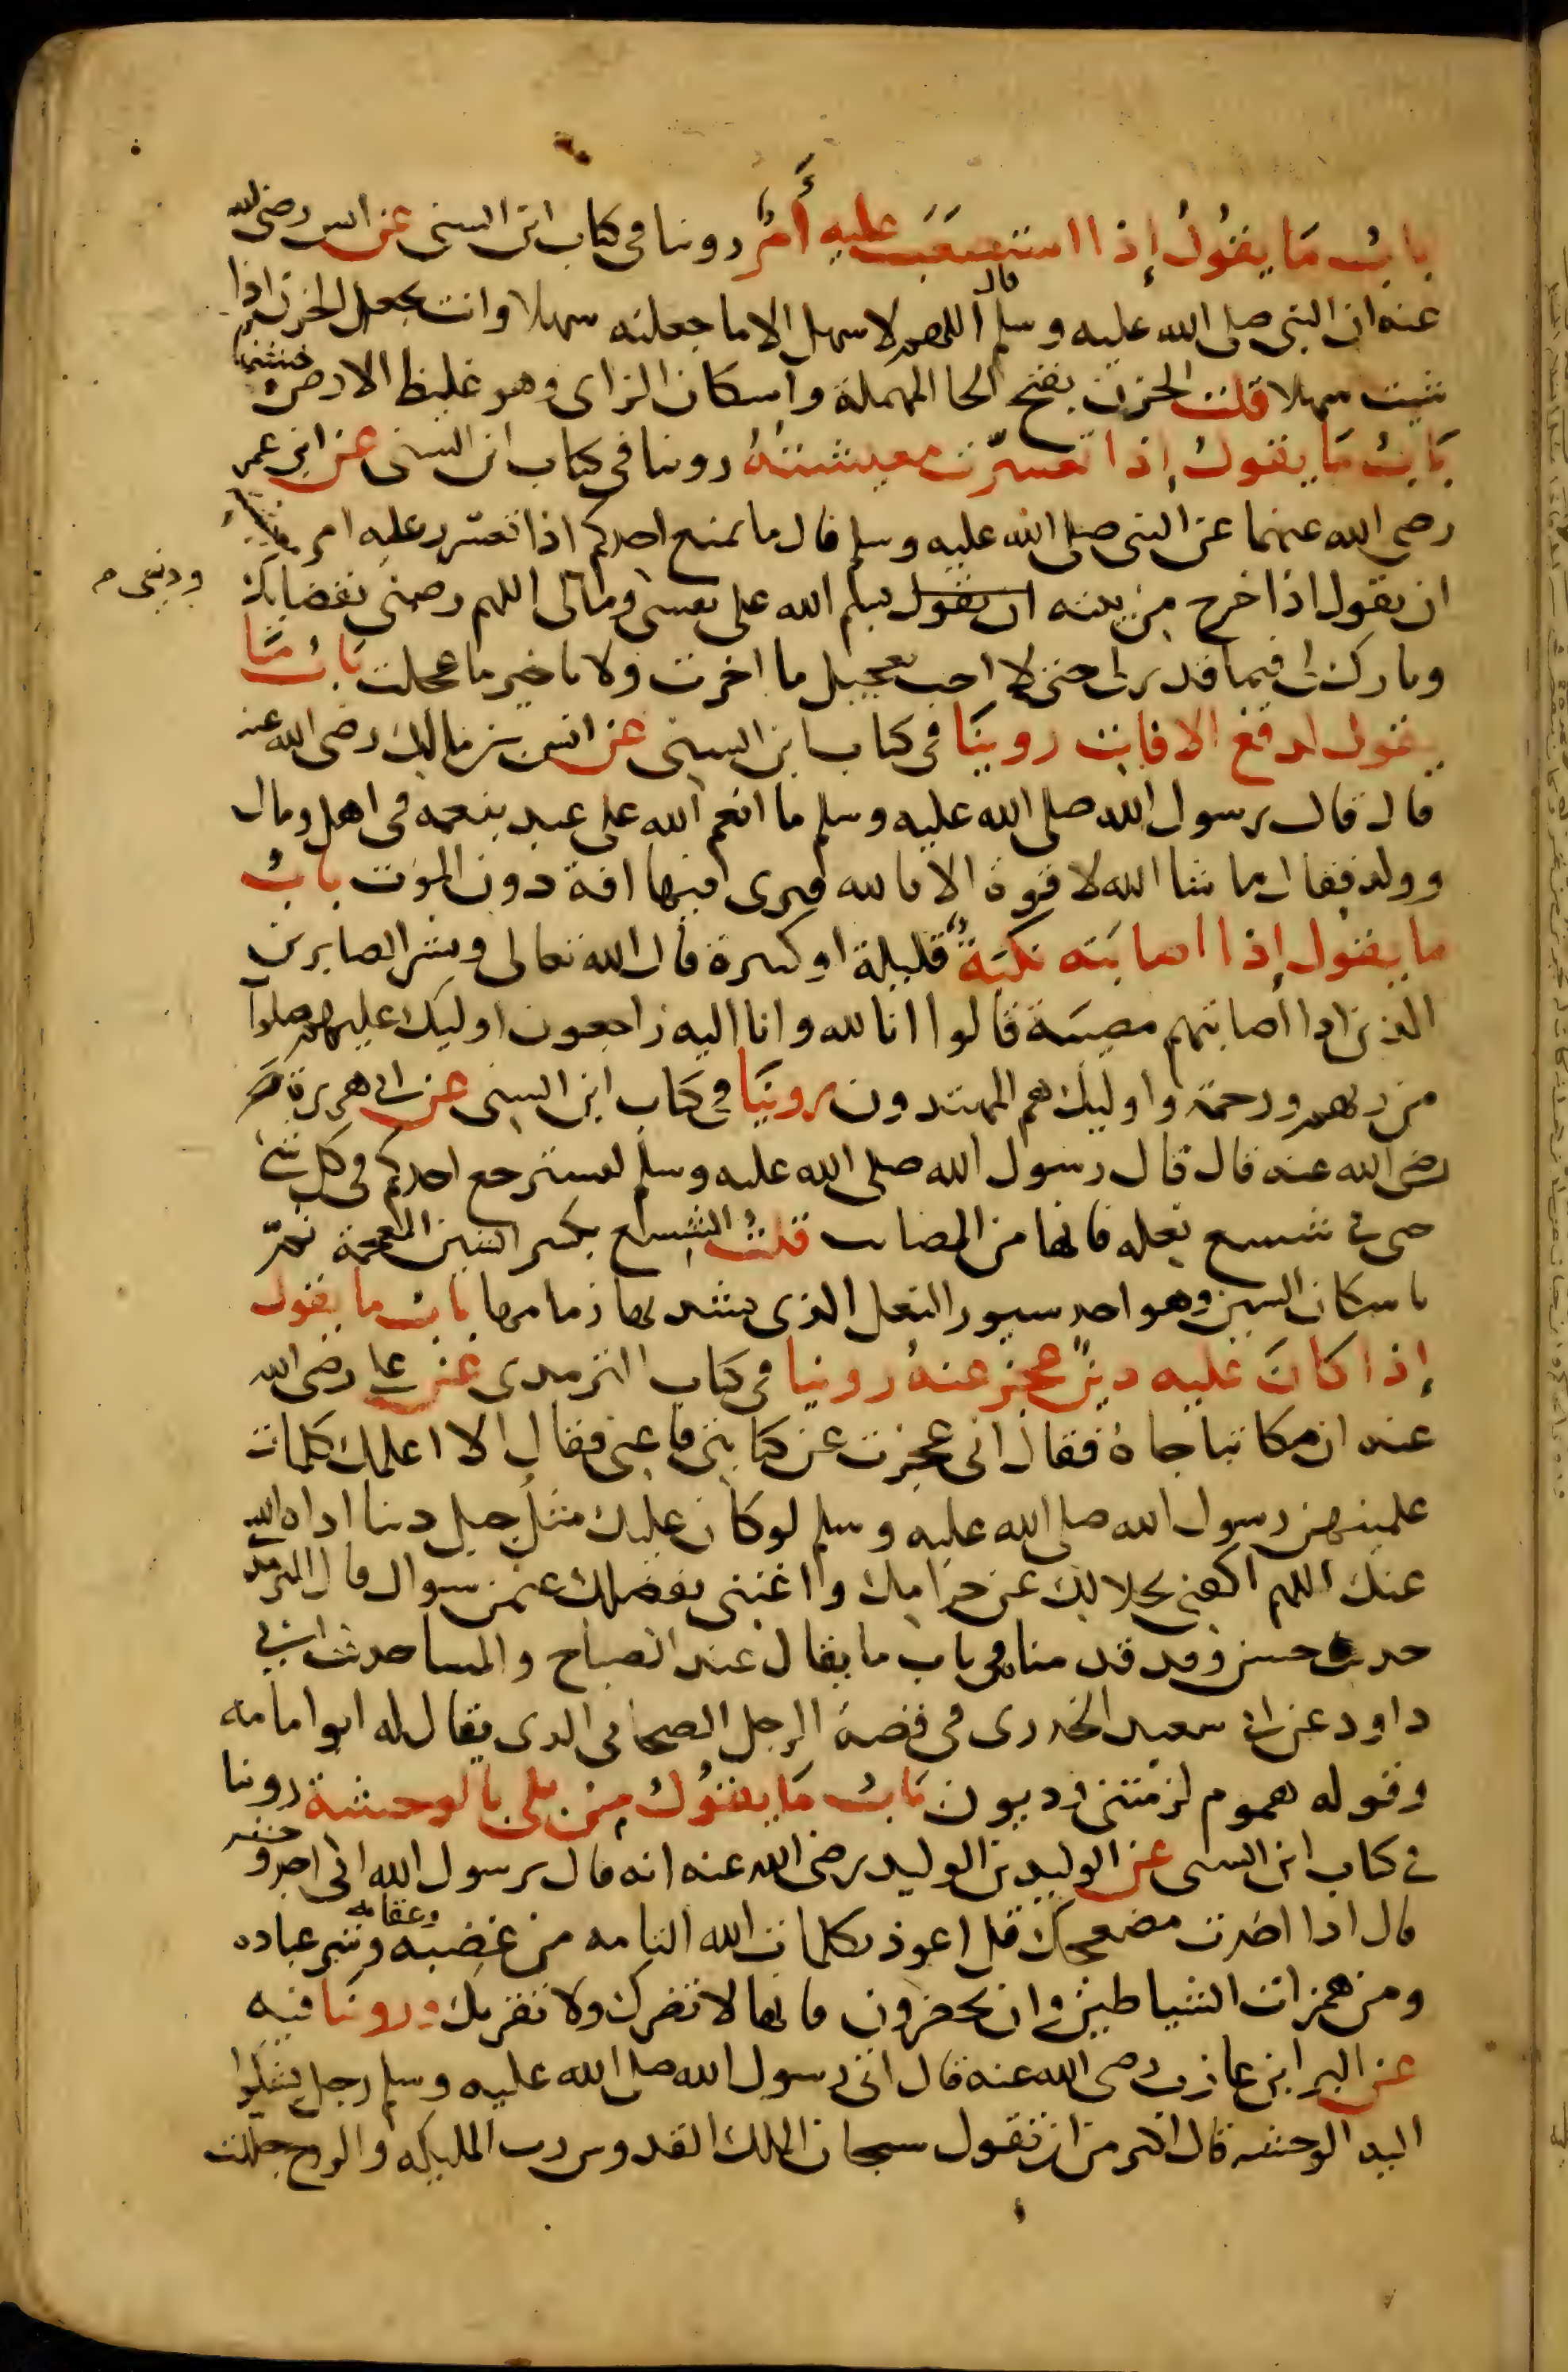 باب ما يقول إذا استصعب عليه أمر روينا في كتاب ابن السني عن انس رضي الله
عنه ان النبي صلى الله عليه وسلم قال اللهم لا سهل الا ما جعلته سهلا وانت تجعل الحزن اذا
شيت سهلا قلت الحزن بفتح الحا المهملة واسكان الزاى وهو غليظ الارض وخشنها
باب ما يقول إذا تعسرت معيشته روينا في كتاب ابن السني عن ابن عمر
رضي الله عنهما عن النبي صلى الله عليه وسلم قال ما يمنع احدكم اذا تعسر عليه امر معيشته
ان يقول اذا خرج من بيته ان يقول بسم الله على نفسي ومالى اللهم رضني بقضايك
ودينى
وبارك لى فيما قدر لى حتى لا احب تعجيل ما اخرت ولا تاخير ما عجلت باب ما
يقول لدفع الافات روينا في كتاب ابن السني عن انس بن مالك رضي الله عنه
قال قال رسول الله صلى الله عليه وسلم ما انعم الله على عبد بنعمه في اهل ومال
وولد فقال ما شا الله لا قوة الا بالله فيرى فيها افة دون الموت باب
ما يقول إذا اصابته نكبة قليلة او كبيرة قال الله تعالى وبشر الصابرين
الذين اذا أصابتهم مصيبة قالوا انا لله وانا اليه راجعون اوليك عليهم صلوات
من ربهم ورحمة واوليك هم المهتدون روينا في كتاب ابن السني عن ابى هريرة
رضي الله عنه قال قال رسول الله صلى الله عليه وسلم ليسترجع احدكم في كل شئ
حتى في شسع نعله فانها من المصايب قلت الشسع بكسر الشين المعجمة ثم
باسكان السين وهو احد سيور النعل الذى يشد بها زمامها باب ما يقول
إذا كان عليه دين عجز عنه روينا في كتاب الترمدى عن علي رضي الله
عنه ان مكاتبا جاه فقال انى عجزت عن كتابتي فاعني فقال الا اعلمك كلمات
علمنيهن رسول الله صلى الله عليه وسلم لو كان عليك مثل جبل دينا اداه الله
عنك اللهم اكفني بحلالك عن حرامك واغنني بفضلك عمن سواك قال الترمدى
حديث حسن وقد قدمنا في باب ما يقال عند الصباح والمسا حديث ابي
داود عن ابى سعيد الخدرى في قصة الرجل الصحابي الدى يقال له ابو امامه
وقوله هموم لزمتني وديون باب ما يقول من بلي بالوحشة روينا
في كتاب ابن السني عن الوليد بن الوليد رضي الله عنه انه قال يرسول الله انى اجد وحشه
قال اذا اخذت مضجعك فقل اعوذ بكلمات الله التامه من غضبه وعقابه وشر عباده
ومن همزات الشياطين وان يحضرون فانها لا تضرك ولا تقربك وروينا فيه
عن البرا بن عازب رضي الله عنه قال اتى رسول الله صلى الله عليه وسلم رجل يشكوا
اليه الوحشه قال اكثر من ان تقول سبحان الملك القدوس رب المليكه والروح جللت